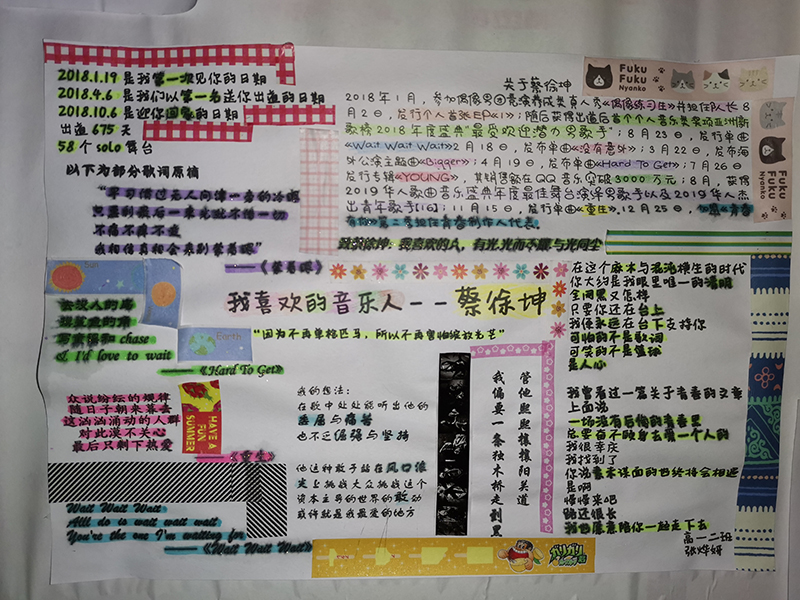 2018.1.19 是我第一次见你的日期
2018.4.6 是我们以第一名送你出道的日期
2018.10.6 是迎你回家的日期
出道 675 天
58 个 solo 舞台
以下为部分歌词原稿
不痛不痒不爱
《蒙着眼》
Fuku
Fuku
Nyanko
Fuku
Fuku
Nyanko
关于蔡徐坤
2018年1月，参加偶像男团竞演养成类真人秀《偶像练习生》并担任队长 8
月2日，发行个人首张EP《1》；随后获得出道后首个个人音乐类奖项亚洲新
歌榜2018年度盛典"最受欢迎潜力男歌手"；8月23日，发行单
曲《Wait Wait Wait》2月18日，发布单曲《没有意外》；3月22日，发布海
外公演主题曲《Bigger》；4月19日，发布单曲《Hard To Get》；7月26
日，发行专辑《YOUNG》，其销售额在QQ音乐突破3000万元；8月，获得
2019华人歌曲音乐盛典年度最佳舞台演绎男歌手以及2019华人杰
出青年歌手[16]；11月15日，发行单曲《重生》.12月25日，加盟《青春
有你》第二季担任青春制作人代表
我喜欢的人，有光，光而不耀，与光同尘
我喜欢的音乐人--蔡徐坤
"因为不再单枪匹马，所以不再害怕绽放光芒"
Earth
chase
& I'd love to wait
《Hard To Get》
众说纷纭的规律
随日子朝来暮去
这汹涌涌动的人群
对此漠不关心
最后只剩下热爱
《重生》
HAVE A
FUN
SUMMER
Wait Wait Wait
All do is wait wait wait
You're the one I'm waiting for
《Wait Wait Wait》
我的想法：
在歌中处处能听出他的
也不乏倔强与坚持
他这种敢于站在风口浪
尖上挑战大众挑战这个
资本主导的世界的敢劲
或许就是我最爱的地方
管他熙熙攘攘阳关道
我偏要一条独木桥走到黑
在这个麻木与混沌横生的时代
你大约是我眼里唯一的清明
全网黑又怎样
只要你还在台上
我便永远在台下支持你
可怕的不是歌词
可笑的不是篮球
是人心
我曾看过一篇关于青春的文章
上面说
一场没有后悔的青春里
总要奋不顾身去爱一个人的
我很幸庆
我找到了
你说素未谋面的也终将会相逢
是啊
慢慢来吧
路还很长
我也愿意陪你一起走下去
高一二班
张烨妍